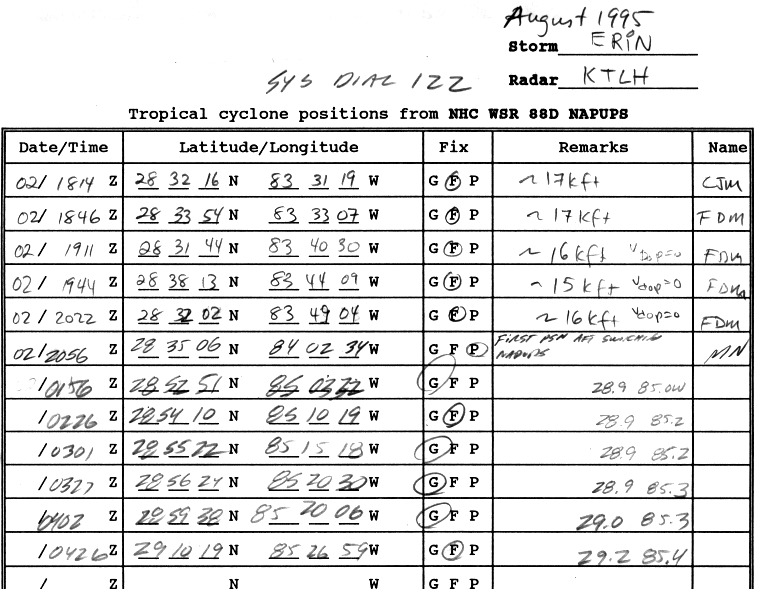 August 1995
Storm ERIN
SYS DIAL 122
Radar KTLH
Tropical cyclone positions from NHC WSR 88D NAPUPS
Date/Time Latitude/Longitude Fix Remarks Name
02/ 1814 Z 28 32 16 N 83 31 19 W G F P ~ 17kft CJM
02/ 1846 Z 28 33 54 N 83 33 07 W G F P ~ 17kft FDM
02/ 1911 Z 28 31 44 N 83 40 30 W G F P ~ 16kft Vdop=0 FDM
02/ 1944 Z 28 38 13 N 83 44 09 W G F P ~ 15kft Vdop=0 FDM
02/ 2022 Z 28 32 02 N 83 49 04 W G F P ~ 16kft Vdop=0 FDM
02/2056 Z 28 35 06 N 84 02 34 W G F P FIRST PSN AFT SWITCHING NAPUPS MN
/0156 Z 28 52 51 N 85 03 22 W G F P 28.9 85.0W
/0226 Z 28 54 10 N 85 10 19 W G F P 28.9 85.2
/0301 Z 28 55 22 N 85 15 18 W G F P 28.9 85.2
/0327 Z 28 56 27 N 85 20 30 W G F P 28.9 85.3
/0402 Z 28 59 38 N 85 20 06 W G F P 29.0 85.3
/0426 Z 29 10 19 N 85 26 59 W G F P 29.2 85.4
/ Z N W G F P